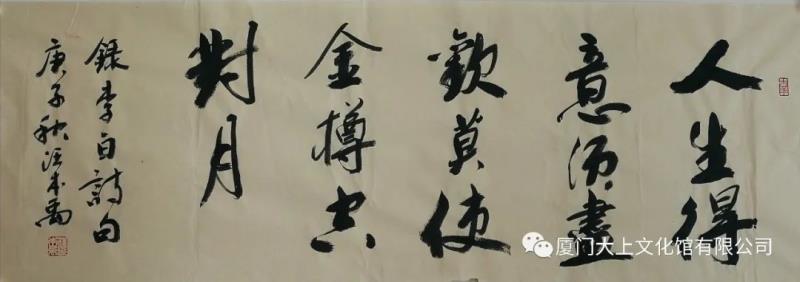 人生得
意須盡
歡莫使
金樽空
對月
錄李白詩句
庚子秋
厦门大上文化馆有限公司